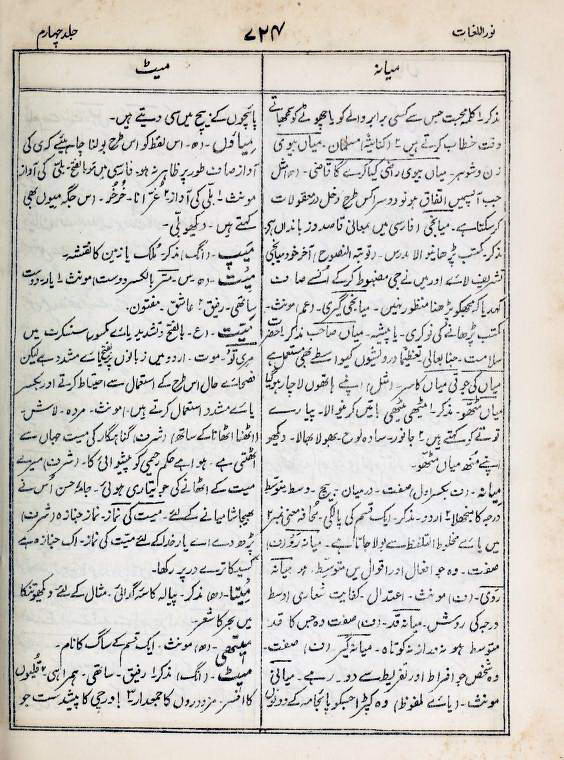 نور اللغات
۷۲۴
جلد چہارم
میانہ
میٹ
مذکر۔ کلمہ محبت جس سے کسی برابر والے کو یا چھوٹے کو سمجھاتے
وقت خطاب کرتے ہیں ۲ (کنایۃً) مسلمان۔ میاں بیوی
زن و شوہر۔ میاں بیوی راضی کیا کرے گا قاضی۔ (ھ) مثل
جب آپس میں اتفاق ہو تو دوسرا کس طرح دخل در معقولات
کر سکتا ہے۔ میانجی (فارسی میں میانجی قاصد و زباندان)
مذکر۔ مکتب پڑھانے والا۔ مدرس۔ (توبۃ النصوح) آخر خود میانجی
تشریف لائے اور میں نے جی مضبوط کر کے اُنسے صاف
کہدیا کہ مجھکو پڑھنا منظور نہیں۔ میانجی گیری۔ (عم) مونث۔
مکتب پڑھانے کی نوکری۔ یا پیشہ۔ میاں صاحب مذکر ۱ حضرت
سلامت۔ جناب عالی تعظیماً ۲ درویشوں کیواسطے بھی مستعمل ہے
میاں کی جوتی میاں کا سر۔ (مثل) اپنے ہاتھوں لاچار ہوگیا
میاں مٹھو۔ مذکر ۱ مٹھی مٹھی باتیں کرنے والا۔ پیار سے
توتے کو کہتے ہیں ۲ جانور۔ سادہ لوح۔ بھولا بھالا۔ دیکھو
اپنے منھ میاں مٹھو۔
میانہ۔ (ف۔ بکسر اول) صفت۔ درمیان۔ بیچ۔ وسط۔ متوسط
درجہ کا۔ منجھلا ۲ اردو۔ مذکر۔ ایک قسم کی پالکی۔ محافہ معنی نمبر ۲
میں یائے مخلوط التلفظ سے بولا جاتا ہے۔ میانہ رو (ف)
صفت۔ وہ جو افعال اور اقوال میں متوسط ہو۔ میانہ
روی (ف) مونث۔ اعتدال۔ کفایت شعاری۔ اوسط
درجہ کی روش۔ میانہ قد۔ (ف) صفت وہ جس کا قد
متوسط ہو نہ دراز نہ کوتاہ۔ میانہ گیر (ف) صفت۔
وہ شخص جو افراط اور تفریط سے دور رہے۔ میانی
مونث۔ (یائے ملفوظ) وہ کپڑا جسکو پائجامہ کے دونوں
پائنچوں کے بیچ میں سی دیتے ہیں۔
میاؤں۔ (ھ)۔ اس لفظ کو اس طرح بولنا چاہیئے کہ ی کی
آواز صاف طور پر ظاہر نہ ہو۔ فارسی میں مؤ بالفتح۔ بلی کی آواز
مونث ۱ بلی کی آواز ۲ غرّانا۔ خُوخُو۔ اس جگہ میوں بھی
کہتے ہیں۔ دیکھو بلّی۔
میپ۔ (انگ) مذکر۔ ملک یا زمین کا نقشہ۔
میت۔ (ھ۔ س۔ متر بالکسر۔ دوست) مونث ۱ یار۔ دوست
ساتھی۔ رفیق ۲ عاشق۔ مفتون۔
میّت۔ (ع۔ بالفتح و تشدید یائے مکسور۔ سنسکرت میں
مرتیو۔ موت۔ اردو میں زبانوں پر بفتح یائے مشدد ہے لیکن
فصحائے حال اس طرح کے استعمال سے احتیاط کرتے اور بکسر
یائے مشدد استعمال کرتے ہیں) مونث۔ مردہ۔ لاش۔
(اٹھنا اٹھانا کے ساتھ) (شرف) گناہگار کی میت جہاں سے
اٹھتی ہے۔ ہوا ہے حکم رحیمی کو پیشوائی کا۔ (شرف) میرے
میت کے اٹھانے کی جو تیاری ہوئی۔ جامۂ حسن اُس نے
بھیجا شامیانے کے لئے۔ میت کی نماز۔ نماز جنازہ (شرف)
پڑھ دے اے یار خدا کے لئے میت کی نماز۔ اک جنازہ ہے
کسی کا ترے در پر رکھا۔
میتا۔ (ھ) مذکر۔ پیالہ۔ کاسۂ گدائی۔ مثال کے لئے دیکھو تنکا
میں بحر کا شعر
میتھی۔ (ھ) مونث۔ ایک قسم کے ساگ کا نام۔
میٹ۔ (انگ) مذکر ۱ رفیق۔ ساتھی۔ ہمراہی ۲ قلیوں
کا افسر۔ مزدوروں کا جمعدار ۳ باورچی کا پیشدست جو